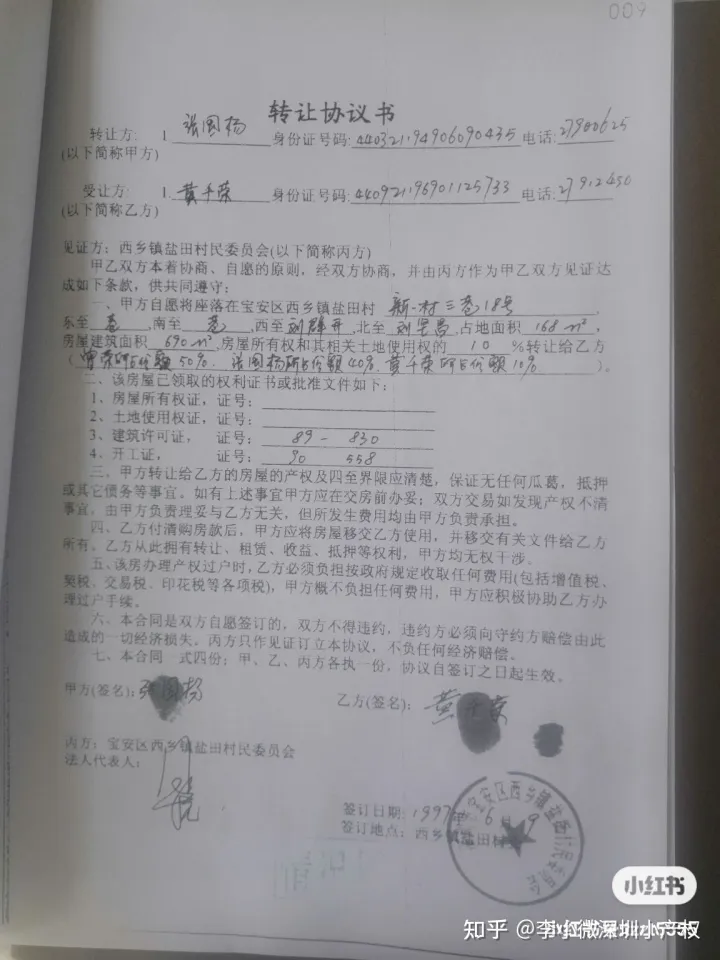 009
转让协议书
转让方: 1. 张国杨 身份证号码: 440321194906090435 电话: 27900625
(以下简称甲方)
受让方: 1. 黄千荣 身份证号码: 440921196901125733 电话: 27912450
(以下简称乙方)
见证方: 西乡镇盐田村民委员会(以下简称丙方)
甲乙双方本着协商、自愿的原则，经双方协商，并由丙方作为甲乙双方见证达
成如下条款，供共同遵守:
一、甲方自愿将座落在宝安区西乡镇盐田村 新一村三巷18号,
东至 巷 ,南至 巷 ,西至 刘群开 ,北至 ,占地面积 168㎡,
房屋建筑面积 690㎡,房屋所有权和其相关土地使用权的 10 %转让给乙方
(曾荣所占份额50%. 张国杨所占份额40%. 黄千荣所占份额10% )。
二、该房屋已领取的权利证书或批准文件如下:
1、房屋所有权证，证号:
2、土地使用权证，证号:
3、建筑许可证， 证号: 89-830
4、开工证， 证号: 90 558
三、甲方转让给乙方的房屋的产权及四至界限应清楚，保证无任何瓜葛，抵押
或其它债务等事宜。如有上述事宜甲方应在交房前办妥; 双方交易如发现产权不清
事宜，由甲方负责理妥与乙方无关，但所发生费用均由甲方负责承担。
四、乙方付清购房款后，甲方应将房屋移交乙方使用，并移交有关文件给乙方
所有。乙方从此拥有转让、租赁、收益、抵押等权利，甲方均无权干涉。
五、该房办理产权过户时，乙方必须负担按政府规定收取任何费用(包括增值税、
契税、交易税、印花税等各项税)，甲方概不负担任何费用，甲方应积极协助乙方办
理过户手续。
六、本合同是双方自愿签订的，双方不得违约，违约方必须向守约方赔偿由此
造成的一切经济损失。丙方只作见证订立本协议，不负任何经济赔偿。
七、本合同一式四份; 甲、乙、丙方各执一份，协议自签订之日起生效。
甲方(签名): 张国杨 乙方(签名): 黄千荣
丙方: 宝安区西乡镇盐田村民委员会
法人代表人:
签订日期: 1997年6月9
签订地点: 西乡镇盐田村
宝安区西乡镇盐田村民委员会
小红书
知乎 @李红微深圳小产权